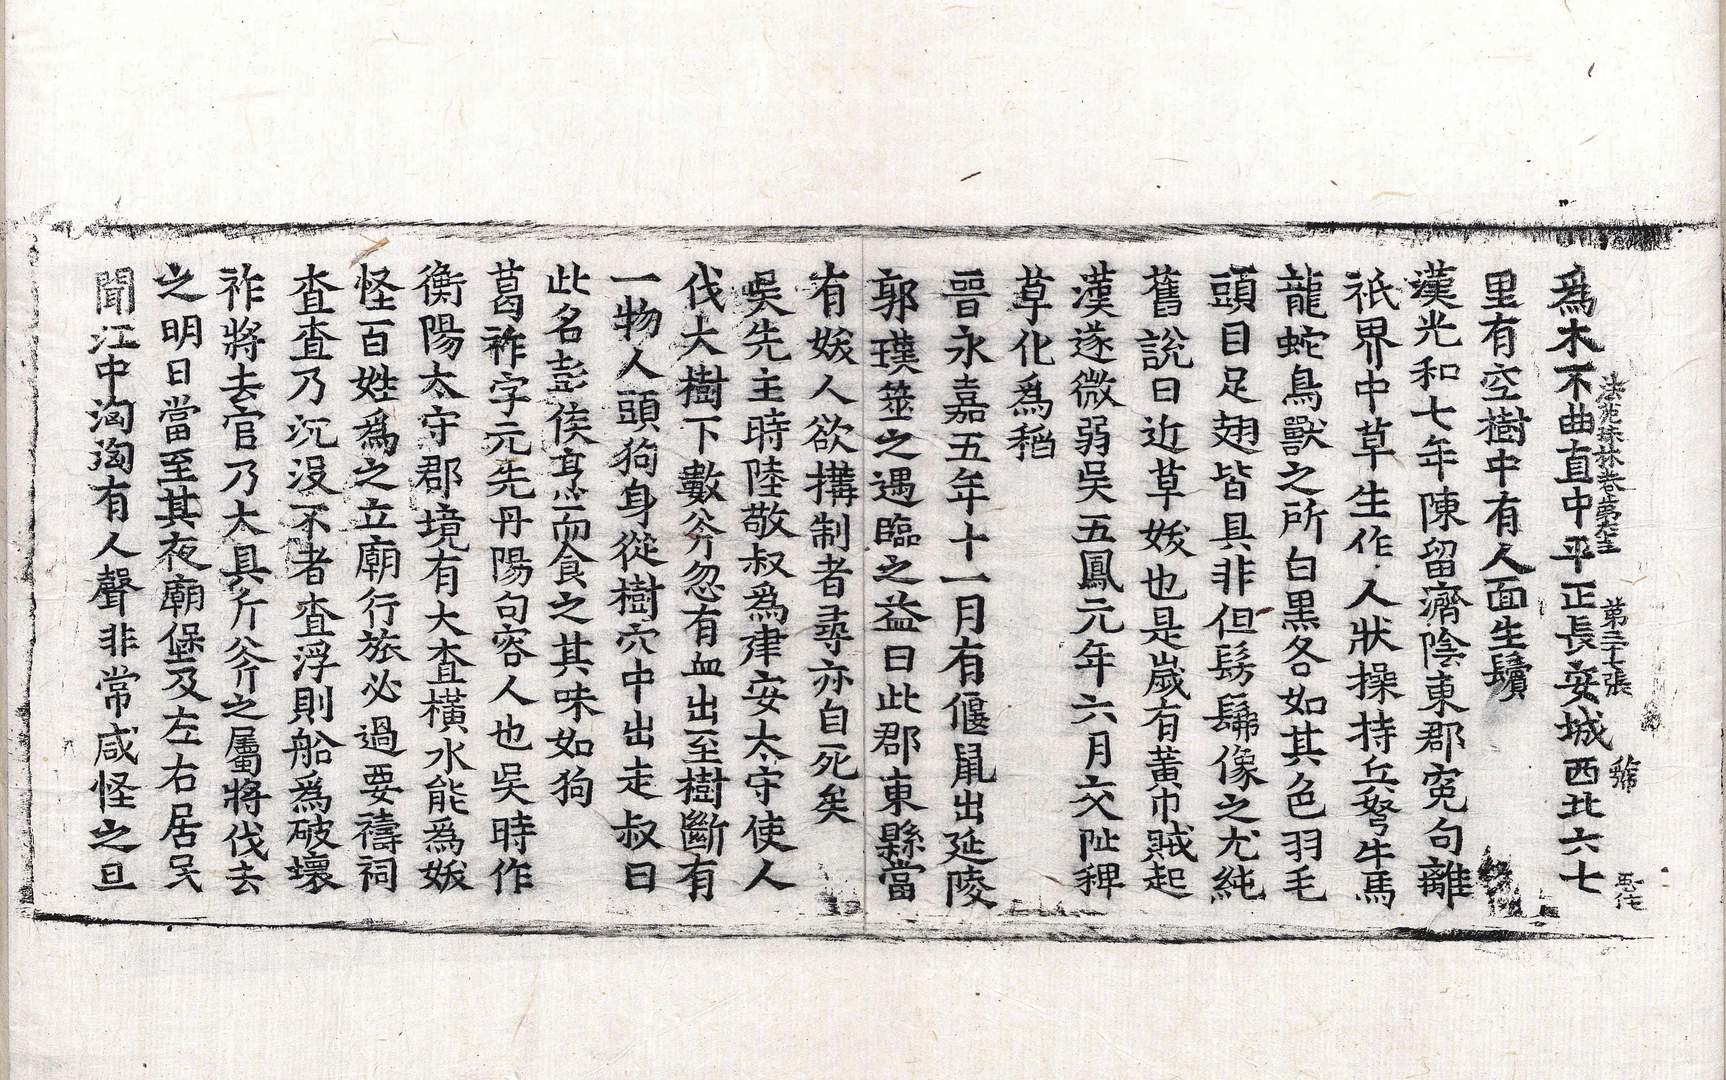 爲木不曲直中平正長安城西北六七
法苑珠林卷第六十三 第三十七張
里有空樹中有人面生鬚
漢光和七年陳留濟陰東郡寃句離
袛界中草生作人狀操持兵弩牛馬
龍蛇鳥獸之所白黑各如其色羽毛
頭目足翅皆具非但髣髴像之尤純
舊說曰近草妖也是歲有黃巾賊起
漢遂微弱吳五鳳元年六月交阯稗
草化爲稻
晉永嘉五年十一月有偃鼠出延陵
郭璞筮之遇臨之益曰此郡東縣當
有妖人欲搆制者尋亦自死矣
吳先主時陸敬叔爲建安太守使人
伐大樹下數斧忽有血出至樹斷有
一物人頭狗身從樹穴中出走叔曰
此名彭侯烹而食之其味如狗
葛祚字元先丹陽句容人也吳時作
衡陽太守郡境有大査橫水能爲妖
怪百姓爲之立廟行旅必過要禱祠
査査乃沉没不者査浮則船爲破壞
祚將去官乃大具斤斧之屬將伐去
之明日當至其夜廟堡及左右居民
聞江中洶洶有人聲非常咸怪之旦